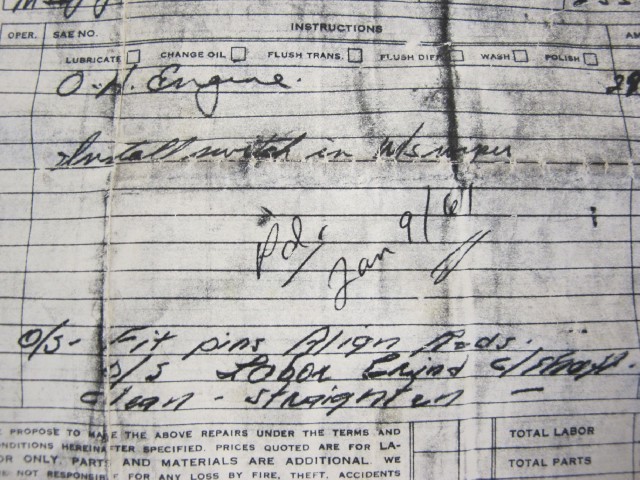 OPER. SAE NO. INSTRUCTIONS AM
LUBRICATE CHANGE OIL FLUSH TRANS. FLUSH DIFF WASH POLISH
O.H. Engine.
Install switch in W/S wiper
Pd. Jan 9/61
O/S - Fit pins Align Rods.
O/S Labor Grind C/Shaft.
Clean - straighten -
PROPOSE TO MAKE THE ABOVE REPAIRS UNDER THE TERMS AND
NDITIONS HEREINAFTER SPECIFIED. PRICES QUOTED ARE FOR LA-
OR ONLY, PARTS AND MATERIALS ARE ADDITIONAL. WE
NOT RESPONSIBLE FOR ANY LOSS BY FIRE, THEFT, ACCIDENTS
TOTAL LABOR
TOTAL PARTS